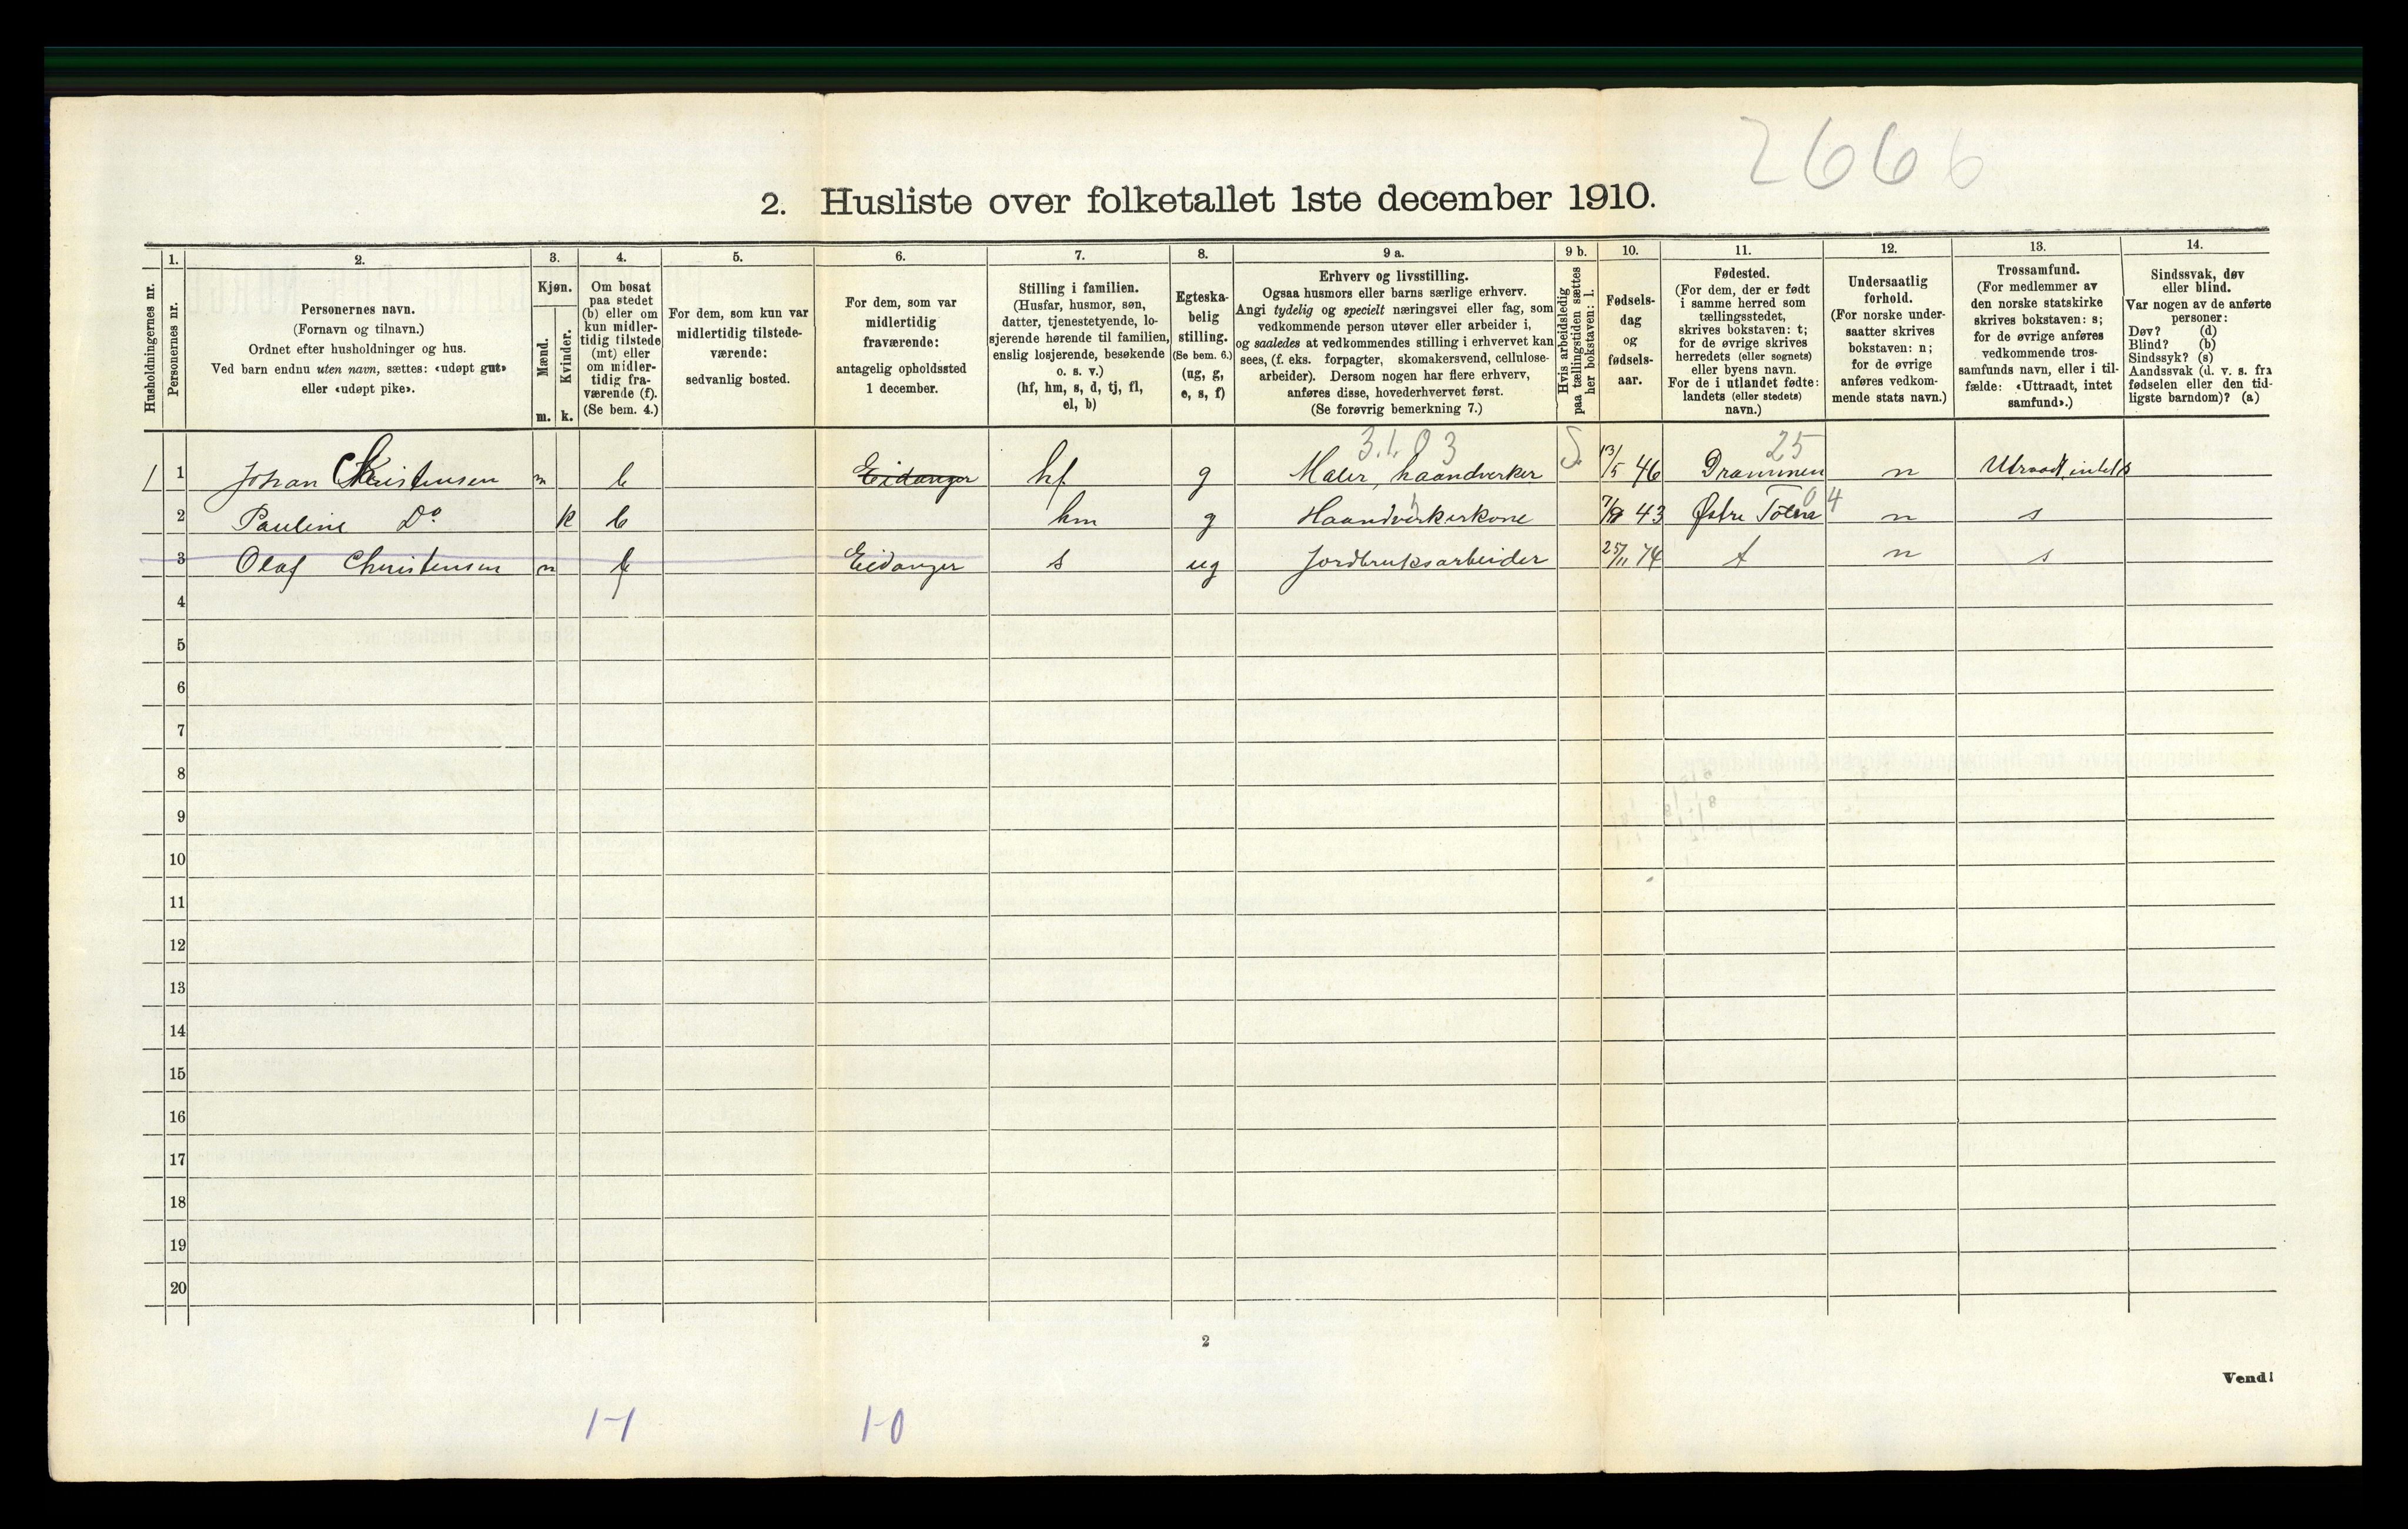 2666
2. Husliste over folketallet 1ste december 1910.
Husholdningernes nr.
1.
Personernes nr.
2.
Personernes navn.
(Fornavn og tilnavn.)
Ordnet efter husholdninger og hus.
Ved barn endnu uten navn, sættes: «udøpt gut»
eller «udøpt pike».
3.
Kjøn.
Mænd.
m.
Kvinder.
k.
4.
Om bosat
paa stedet
(b) eller om
kun midler-
tidig tilstede
(mt) eller
om midler-
tidig fra-
værende (f).
(Se bem. 4.)
5.
For dem, som kun var
midlertidig tilstede-
værende:
sedvanlig bosted.
6.
For dem, som var
midlertidig
fraværende:
antagelig opholdssted
1 december.
7.
Stilling i familien.
(Husfar, husmor, søn,
datter, tjenestetyende, lo-
sjerende hørende til familien,
enslig losjerende, besøkende
o. s. v.)
(hf, hm, s, d, tj, fl,
el, b)
8.
Egteska-
belig
stilling.
(Se bem. 6.)
(ug, g,
e, s, f)
9 a.
Erhverv og livsstilling.
Ogsaa husmors eller barns særlige erhverv.
Angi tydelig og specielt næringsvei eller fag, som
vedkommende person utøver eller arbeider i,
og saaledes at vedkommendes stilling i erhvervet kan
sees, (f. eks. forpagter, skomakersvend, cellulose-
arbeider). Dersom nogen har flere erhverv,
anføres disse, hovederhvervet først.
(Se forøvrig bemerkning 7.)
9 b.
Hvis arbeidsledig
paa tællingstiden sættes
her bokstaven: l.
10.
Fødsels-
dag
og
fødsels-
aar.
11.
Fødested.
(For dem, der er født
i samme herred som
tællingsstedet,
skrives bokstaven: t;
for de øvrige skrives
herredets (eller sognets)
eller byens navn.
For de i utlandet fødte:
landets (eller stedets)
navn.)
12.
Undersaatlig
forhold.
(For norske under-
saatter skrives
bokstaven: n;
for de øvrige
anføres vedkom-
mende stats navn.)
13.
Trossamfund.
(For medlemmer av
den norske statskirke
skrives bokstaven: s;
for de øvrige anføres
vedkommende tros-
samfunds navn, eller i til-
fælde: «Uttraadt, intet
samfund».)
14.
Sindssvak, døv
eller blind.
Var nogen av de anførte
personer:
Døv? (d)
Blind? (b)
Sindssyk? (s)
Aandssvak (d. v. s. fra
fødselen eller den tid-
ligste barndom)? (a)
3.1.03 S. 25
1 1 Johan Christensen m b Eidanger hf g Maler, haandverker 13/5 46 Drammen n
04
2 Pauline Do k b hm g Haandverkerkone 43 Østre Toten n s
3 Olaf Christensen m f Eidanger s ug Jordbruksarbeider 25/11 74 t n s
4
5
6
7
8
9
10
11
12
13
14
15
16
17
18
19
20
2
Vend!
1-1 1-0